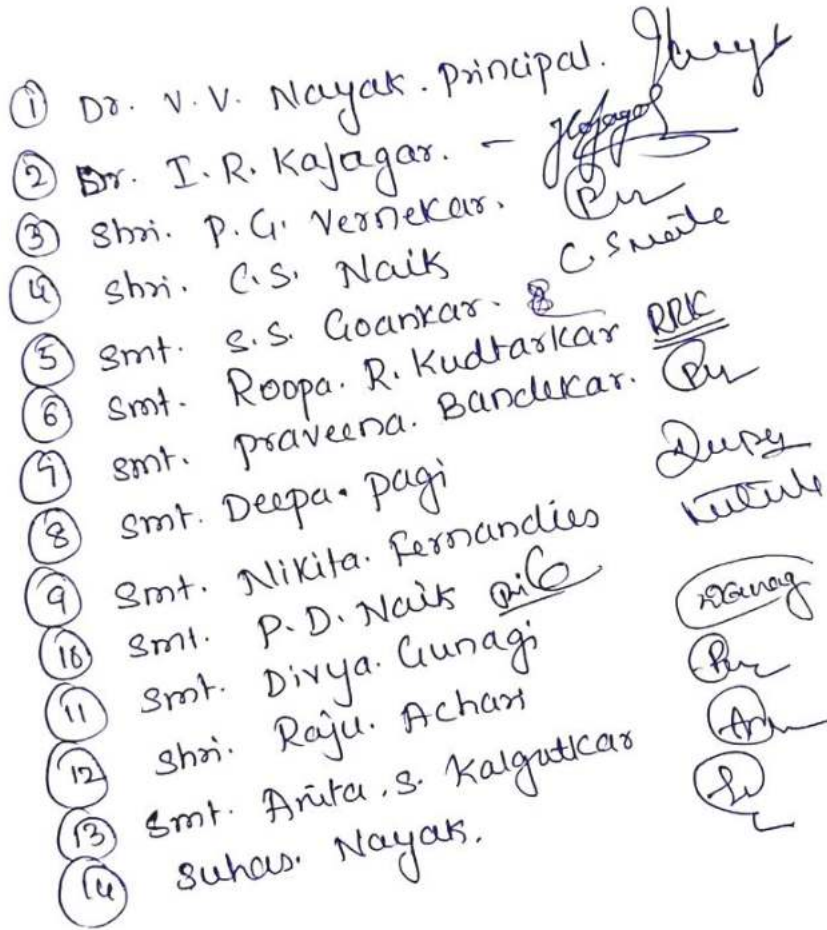 ① Dr. V. V. Nayak. Principal.
② Dr. I. R. Kajagar. -
③ Shri. P. G. Vernekar.
④ Shri. C. S. Naik C. S Naik
⑤ Smt. S. S. Goankar.
⑥ Smt. Roopa. R. Kudtarkar RRK
⑦ Smt. Praveena. Bandekar.
⑧ Smt. Deepa. Pagi
⑨ Smt. Nikita. Fernandies
⑩ Smt. P. D. Naik
⑪ Smt. Divya. Gunagi
⑫ Shri. Raju. Achari
⑬ Smt. Anita. S. Kalgutkar
⑭ Suhas. Nayak.